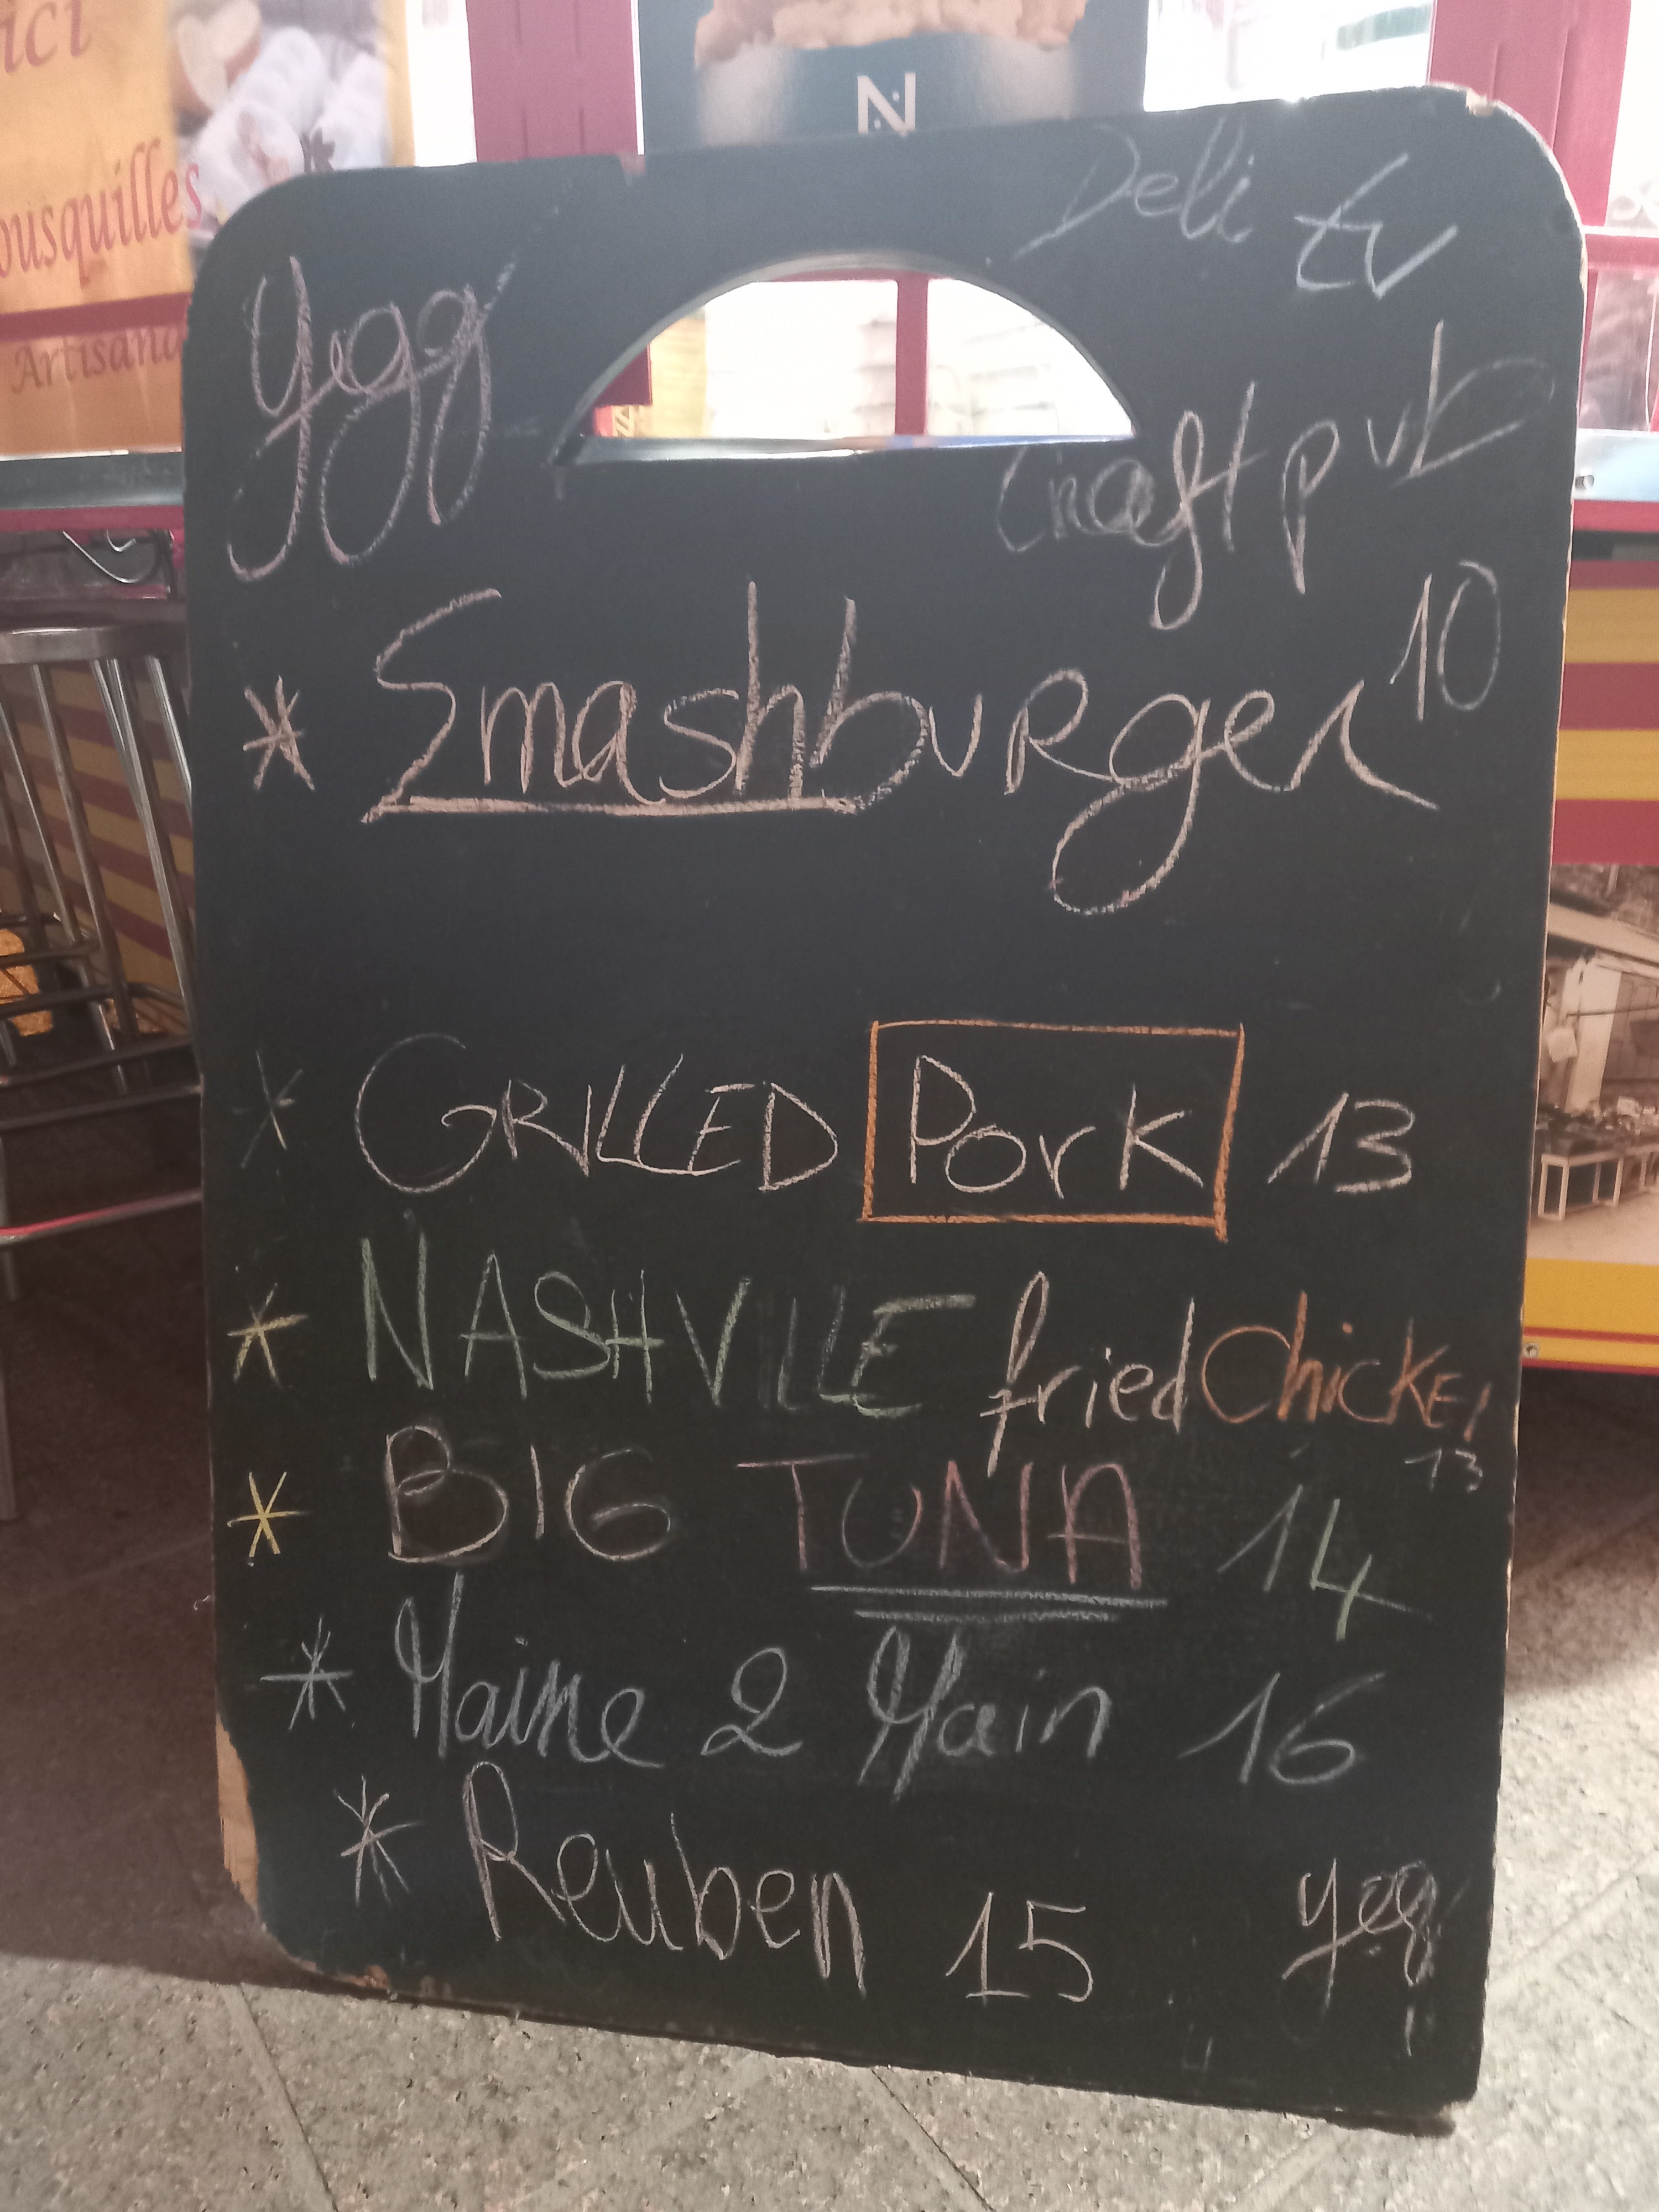 ici
ousquilles
Artisana
N
Deli &
Ygg
Craft pub
* Smashburger 10
* GRILLED Pork 13
* NASHVILLE fried Chicken
13
* BIG TUNA 14
* Maine 2 Main 16
* Reuben 15
ygg